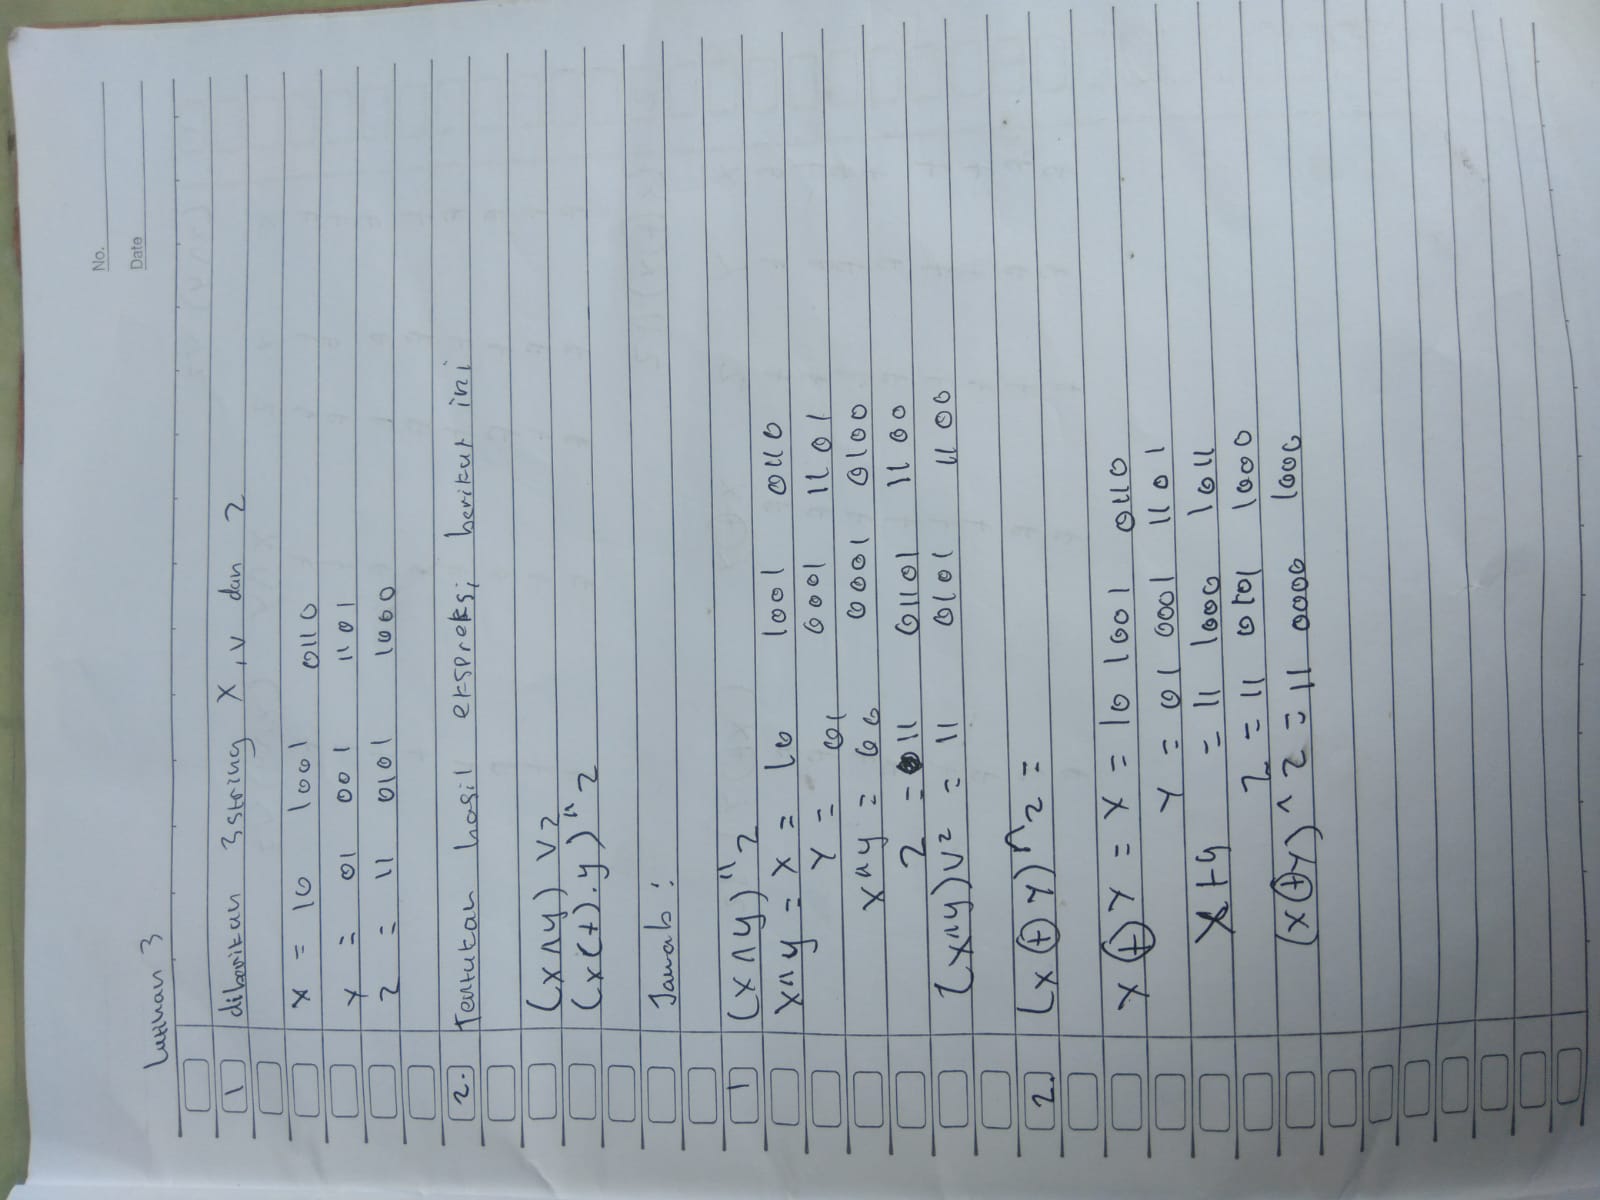 No.
Date
Latihan 3
1 diberikan 3 string X, V dan 2
x = 10 1001 0110
Y = 01 001 1101
2 = 11 0101 1000
2. Tentukan hasil ekspreksi berikut ini
(x ∧ y) v 2
(x (+). y) ^ 2
Jawab :
1 (x ∧ y) ^ 2
x ^ y = x = 10 1001 0110
Y = 01 0001 1101
x ^ y = 00 0001 0100
2 = 11 01101 1100
(x ^ y) v 2 = 11 0101 1100
2. (x ⊕ y) ^ 2 =
x ⊕ y = x = 10 1001 0110
Y = 01 0001 1101
x + y = 11 1000 1011
2 = 11 0101 1000
(x ⊕ y) ^ 2 = 11 0000 1000